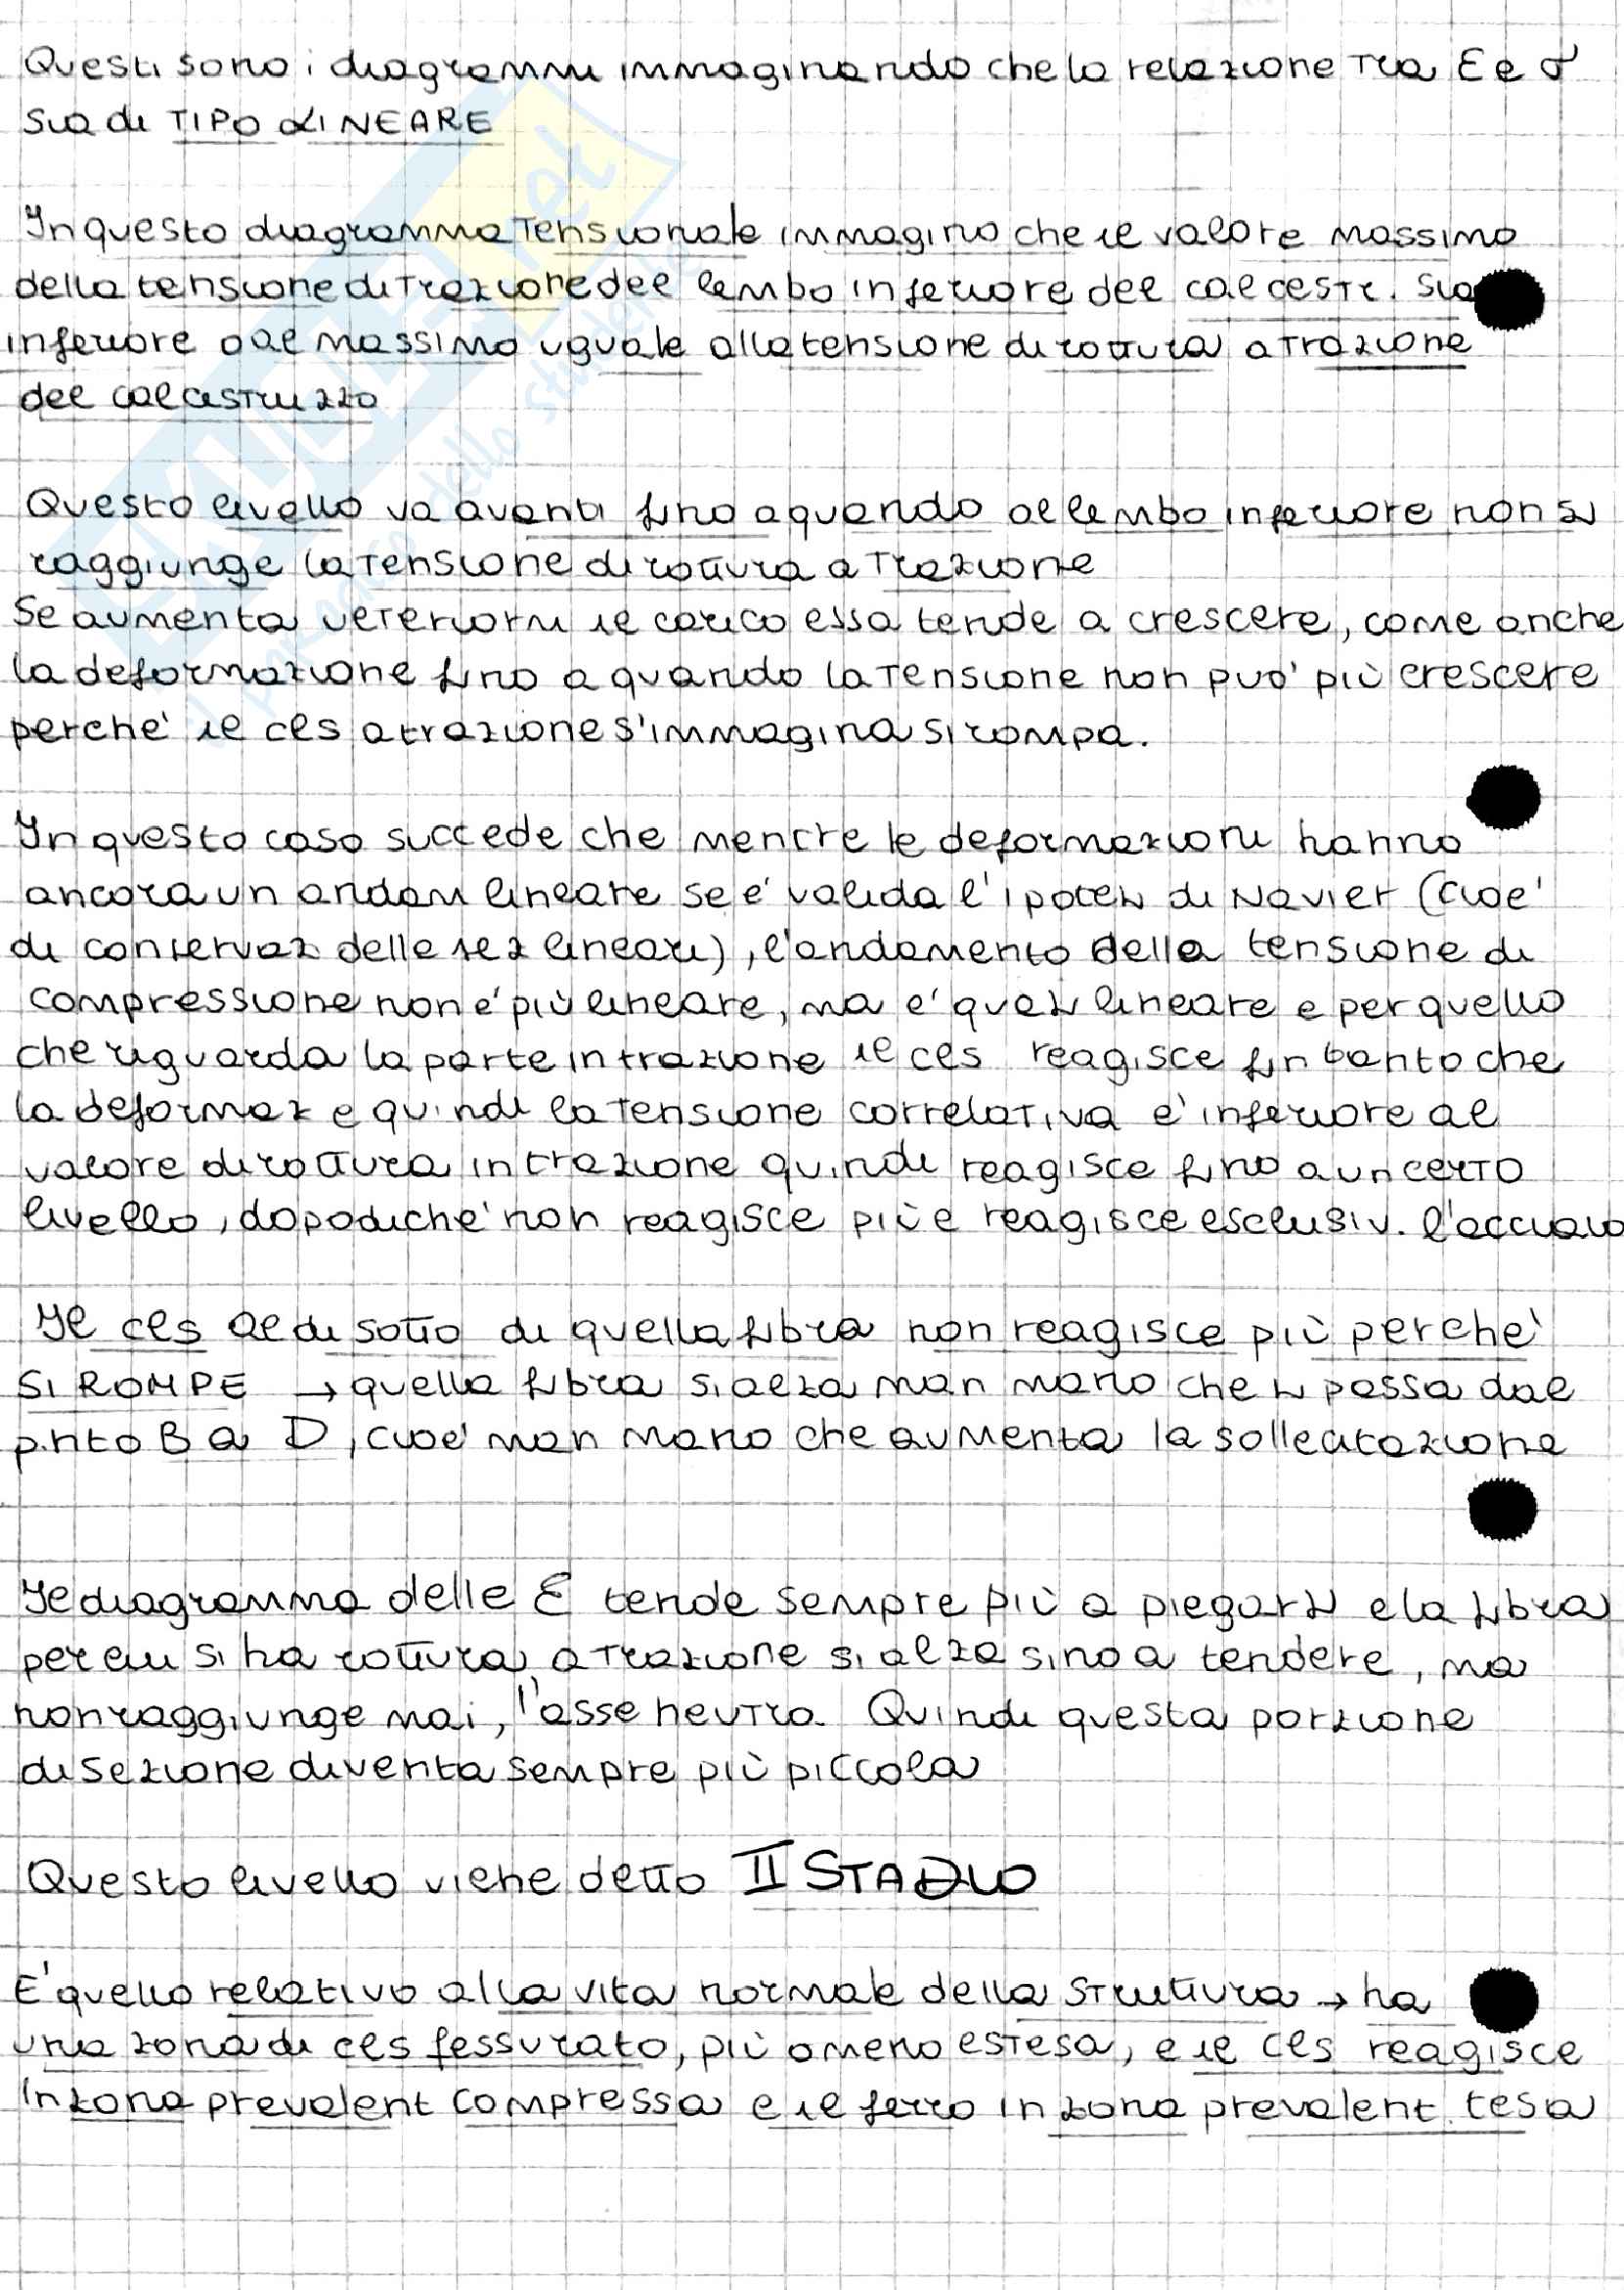 Questi sono i diagrammi immaginando che la relazione tra ε e σ
sia di TIPO LINEARE
In questo diagramma tensionale immagino che il valore massimo
della tensione di trazione del lembo inferiore del calcestr. sia
inferiore o al massimo uguale alla tensione di rottura a trazione
del calcestruzzo
Questo livello va avanti fino a quando al lembo inferiore non si
raggiunge la tensione di rottura a trazione
Se aumenta ulteriorm il carico essa tende a crescere, come anche
la deformazione fino a quando la tensione non può più crescere
perché il cls a trazione s'immagina si rompa.
In questo caso succede che mentre le deformazioni hanno
ancora un andam lineare se è valida l'ipotesi di Navier (cioè
di conservaz delle sez lineari), l'andamento della tensione di
compressione non è più lineare, ma è quasi lineare e per quello
che riguarda la parte in trazione il cls reagisce fin tanto che
la deformaz e quindi la tensione correlativa è inferiore al
valore di rottura in trazione quindi reagisce fino a un certo
livello, dopodiché non reagisce più e reagisce esclusiv. l'acciaio
Il cls al di sotto di quella fibra non reagisce più perché
SI ROMPE → quella fibra si alza man mano che si passa dal
p.nto B a D, cioè man mano che aumenta la sollecitazione
Il diagramma delle ε tende sempre più a piegarsi e la fibra
per cui si ha rottura a trazione si alza sino a tendere, ma
non raggiunge mai, l'asse neutro. Quindi questa porzione
di sezione diventa sempre più piccola
Questo livello viene detto II STADIO
E' quello relativo alla vita normale della struttura → ha
una zona di cls fessurato, più o meno estesa, e il cls reagisce
in zona prevalent compressa e il ferro in zona prevalent. tesa
net